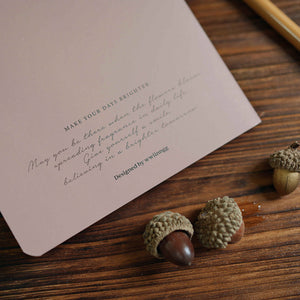 MAKE YOUR DAYS BRIGHTER
May you be there when the flowers bloom,
spreading fragrance in daily life.
Give yourself a smile,
believing in a brighter tomorrow.
Designed by